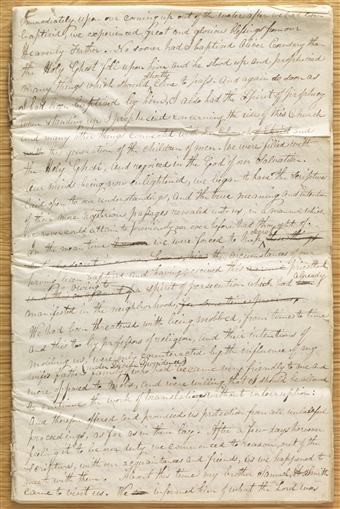 Immediately upon our coming up out of the water after we had been
baptized, we experienced great and glorious blessings from our
Heavenly Father. No sooner had I baptized Oliver Cowdery than
the Holy Ghost fell upon him and he stood up and prophecied
many things which should shortly come to pass. And again so soon as
I had been baptized by him, I also had the Spirit of prophecy,
when standing up I prophecied concerning the rise of this Church
and many other things connected with the Church and
this generation of the children of men. We were filled with
the Holy Ghost, and rejoiced in the God of our Salvation.
Our minds being now enlightened, we began to have the Scriptures
laid open to our understandings, and the true meaning and intention
of their more mysterious passages revealed unto us, in a manner which
we never could attain to previously, nor ever before had thought of.
In the mean time we were forced to keep secret
the circumstances of our
having been baptized, and having received this priesthood,
owing to a spirit of persecution which had already
manifested in the neighborhood,
We had been threatened with being mobbed, from time to time
and this too by professors of religion, and their intentions of
mobbing us, were only counteracted by the influence of my
wife's father's family (under Divine providence) who had became very friendly to me and
were opposed to mobs, and were willing that I should be allowed
to continue the work of translation without interruption:
And therefore offered and promised us protection from all unlawful
proceedings, as far as in them lay. After a few days however
feeling it to be our duty, we commenced to reason out of the
Scriptures, with our acquaintances and friends, as we happened to
meet with them. About this time my brother Samuel H. Smith
came to visit us. We informed him of what the Lord was